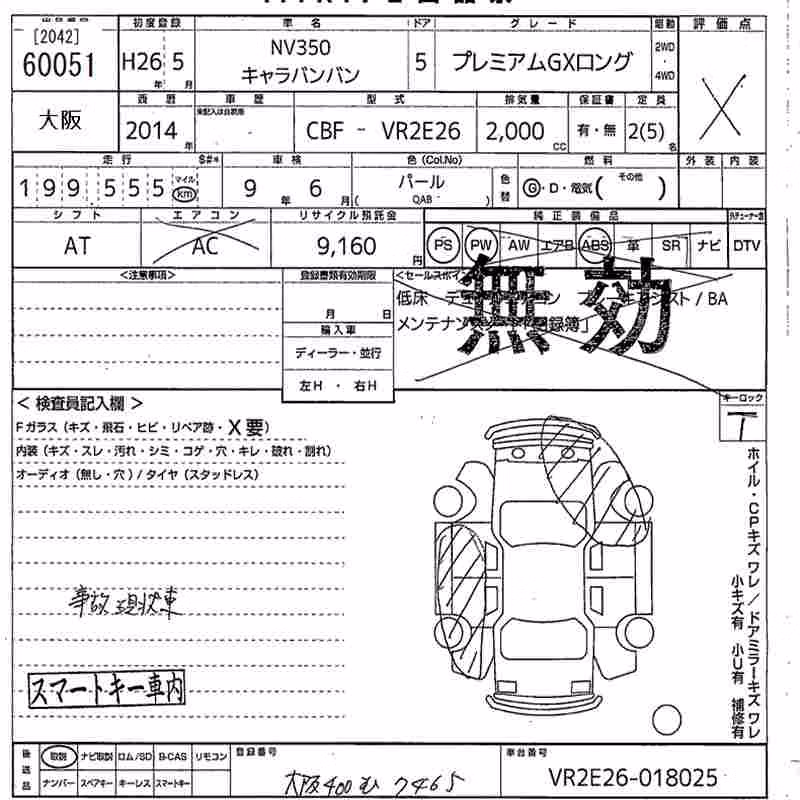 初度登録 車名 ドア グレード 駆動 評価点
[2042]
60051
H26年 5月
NV350
キャラバンバン
5
プレミアムGXロング
2WD
・
4WD
X
大阪
西暦 車歴 型式 排気量 保証書 定員
未記入は自家用
2014年
CBF - VR2E26
2,000cc
有・無
2(5)名
走行 S#* 車検 色(Col.No) 燃料 外装 内装
199555 マイル km
9年 6月
パール
( QAB )
色替
G・D・電気( その他 )
シフト エアコン リサイクル預託金 純正装備品
AT AC 9,160円
PS PW AW エアB ABS 革 SR ナビ DTV
<注意事項> 登録書類有効期限 <セールスポイン
無効
低床
/ BA
月 日
輸入車
ディーラー・並行
左H ・ 右H
< 検査員記入欄 >
Fガラス (キズ・飛石・ヒビ・リペア跡・X要)
内装 (キズ・スレ・汚れ・シミ・コゲ・穴・キレ・破れ・割れ)
オーディオ (無し・穴) / タイヤ (スタッドレス)
キーロック
T
ホイル・CPキズワレ/ドアミラーキズワレ
小キズ有 小U有 補修有
事故現状車
スマートキー車内
後送品
取説 ナビ取説 ロム/SD B-CAS リモコン
ナンバー スペアキー キーレス スマートキー
登録番号
大阪400む7465
車台番号
VR2E26-018025